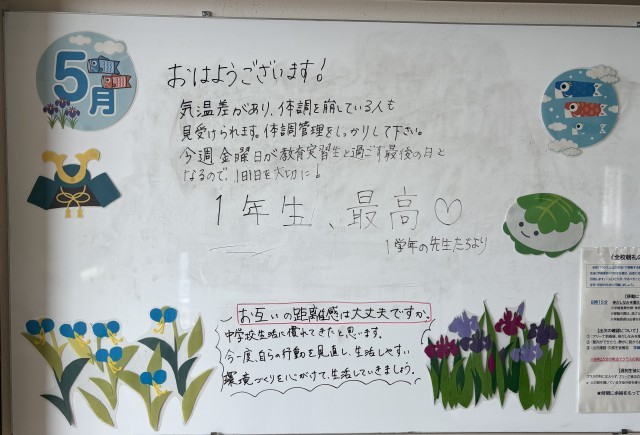 5月
おはようございます!
気温差があり、体調を崩している人も
見受けられます。体調管理をしっかりして下さい。
今週金曜日が教育実習生と過ごす最後の日と
なるので、1日1日を大切に!
1年生、最高♡
1学年の先生たちより
お互いの距離感は大丈夫ですか。
中学校生活に慣れてきたと思います。
今一度、自らの行動を見直し、生活しやすい
環境づくりを心がけて生活していきましょう。